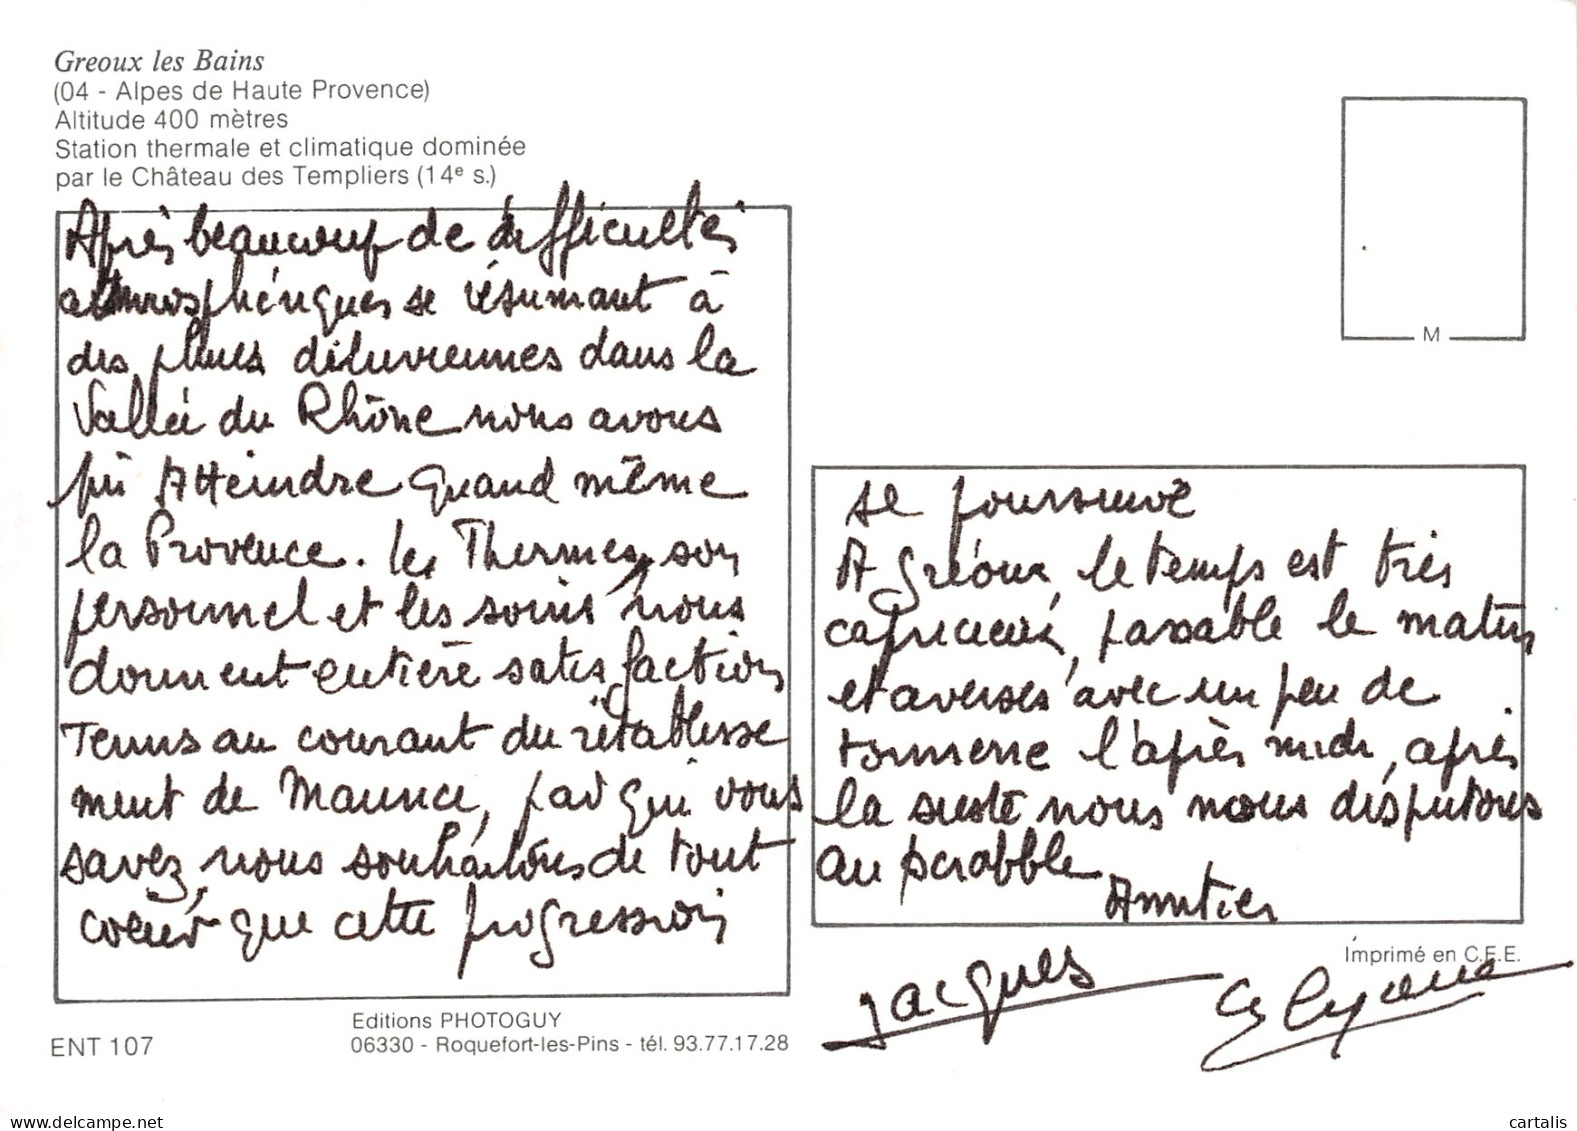 Greoux les Bains
(04 - Alpes de Haute Provence)
Altitude 400 mètres
Station thermale et climatique dominée
par le Château des Templiers (14e s.)
Après beaucoup de difficultés
atmosphériques se résumant à
des pluies diluviennes dans la
Vallée du Rhône nous avons
pû Atteindre quand même
la Provence. les Thermes, son
personnel et les soins nous
donnent entière satisfaction
Tenus au courant du rétablisse
ment de Maurice, par qui vous
savez, nous souhaitons de tout
coeur que cette progression
ENT 107
Editions PHOTOGUY
06330 - Roquefort-les-Pins - tél. 93.77.17.28
M
se poursuive
A Gréoux, le temps est très
capricieux, passable le matin
et averses avec un peu de
tonnerre l'après midi, après
la sieste nous nous disputons
au scrabble
Amitiés
Imprimé en C.E.E.
Jacques
delcampe.net
cartalis